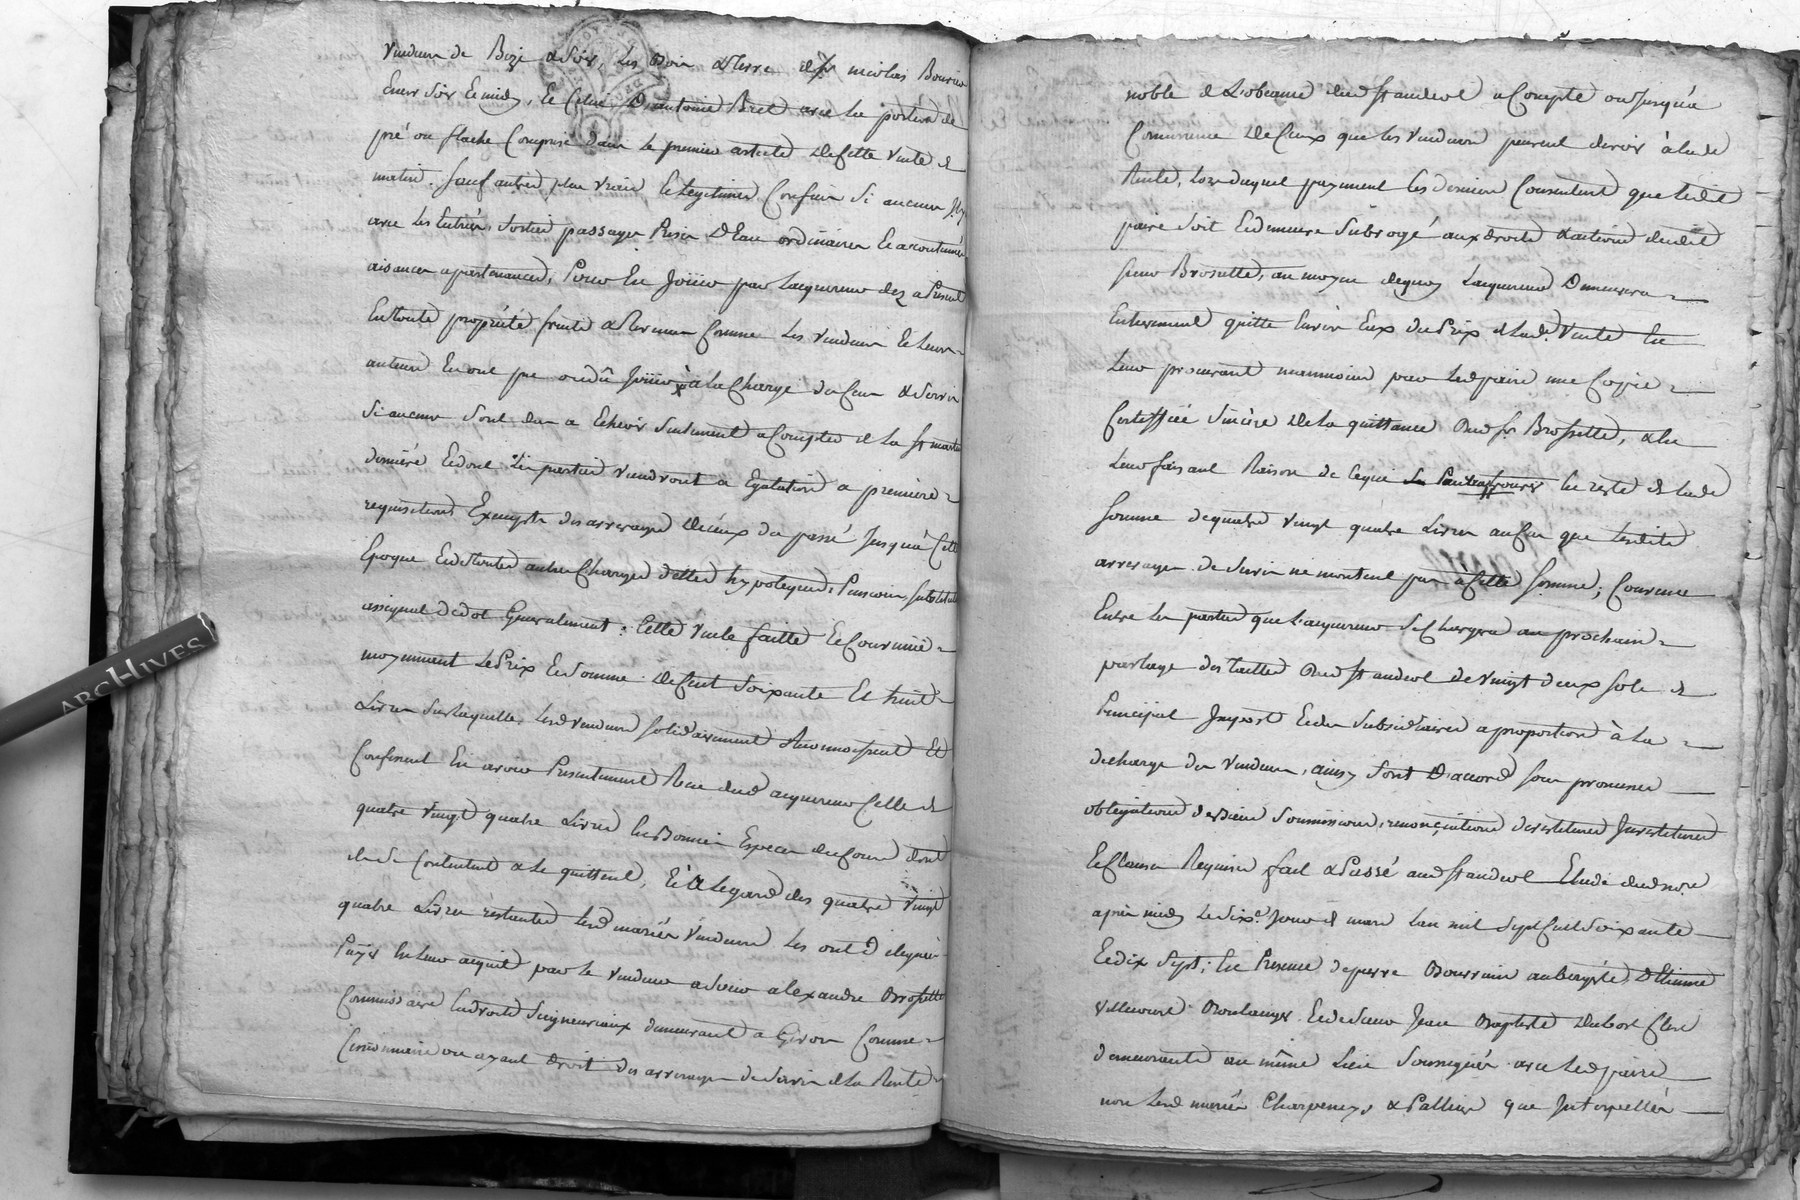 vendeurs de Bize & soir, les bois & terre de nicolas Bourrin
Encor soir & midy, & Celui D'antoine Bret avec les portions de
pré ou flache Comprise dans le premier article De cette vente de
matin. sauf autres plus vrais & legitimes Confins si aucuns il y a
avec les Entrées, sorties passages Prises D'Eau ordinaires & acoutumées
aisances apartenances, Pour En Joüir par lacquereur dez a Present
En toute propriété fruits & Revenus Comme les vendeurs & leurs
auteurs En ont pu ou dû Joüir à la Charge du Cens & servis
si aucuns sont dus a Echoir seulement a Compter de la st martin
derniere & dont les parties viendront a Egalation a premiere
requisition Exempte des arrerages De iceux du passé Jusqu'a Cette
Epoque & de toutes autres Charges dettes hypoteques, Pensions, substitutions
assignat de dot Generalement. Cette vente faitte & Convenuë
moyennant le Prix & somme De Cent soixante & huit
Livres sur laquelle lesd vendeurs solidairement Reconnoissent Et
Confessent En avoir Presentement Recu dud acquereur Celle de
quatre vingt quatre Livres En Bonnes Especes du Cours dont
ils se Contentent & le quittent, Et A Legard des quatre vingt
quatre Livres restantes lesd mariés vendeurs les ont
Payer En leur acquit par le vendeur a sieur alexandre Brossette
Commissaire En droits seigneuriaux demeurant a Givors Comme
Cessionnaire ou ayant droit des arrerages de servis de la Rente
noble de L'obeance dud st andeol a Compte ou Jusqu'a
Concurrence De Ceux que les vendeurs peuvent devoir à lad
Rente, Lors duquel payement Ces derniers Consentent que ledit
paire soit & demeure subrogé aux droits & actions dudit
sieur Brossette, au moyen dequoy Lacquereur Demeurera
Entierement quitte Envers Eux du Prix de lad. Vente En
Leur procurant neanmoins par led paire une Copie
Certiffiée sincère De la quittance Dud sr Brossette, & En
Leur faisant Raison de ce qui le reste de lad
somme de quatre vingt quatre Livres au Cas que lesdits
arrerages de servis ne montent pas a Cette somme; Convenu
Entre les parties que l'acquereur se Chargera au prochain
partage des tailles Dud st andeol de vingt deux sols de
Principal Impost & des subsidiaires a proportion à la
decharge des vendeurs, ainsy sont D'accord sous promesses
obligations de biens soumissions, renonçiations devestitures Investitures
& Clauses Requises fait & Passé aud st andeol Etude dud nore
après midy le dixe Jour de mars l'an mil sept Cent soixante
& dix sept; En Presence de pierre Bourrin aubergiste, D'Etienne
Villecourt Boulanger & de sieur Jean Baptiste Dubost Clerc
demeurants au même Lieu soussignés avec led paire
non lesd mariés Charpenay & Pallier que Interpellés
ARCHIVES